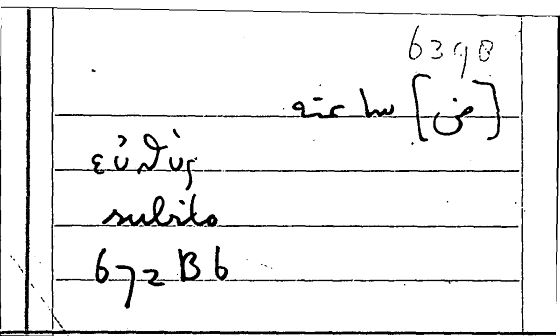 6398
[من] ساعته
εὐϑύς
subito
672 B 6